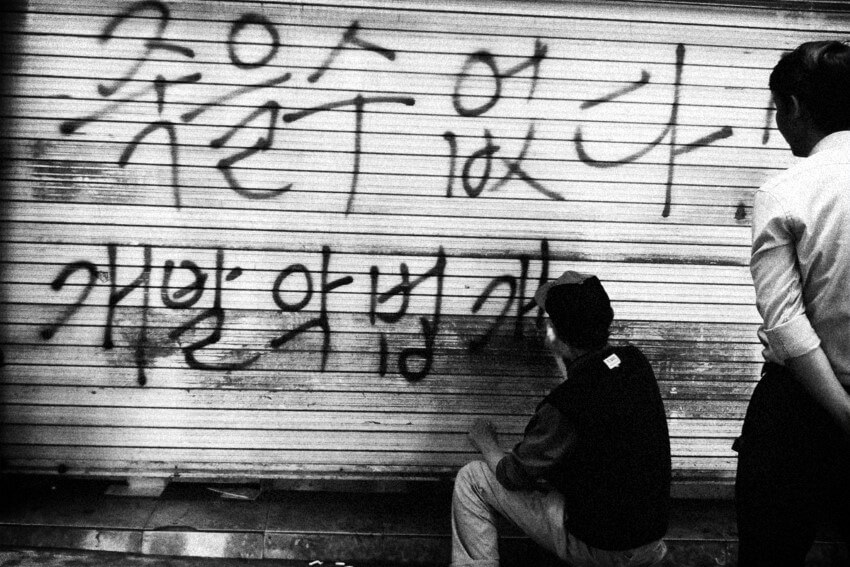 죽을수 없다!
개발악법 개